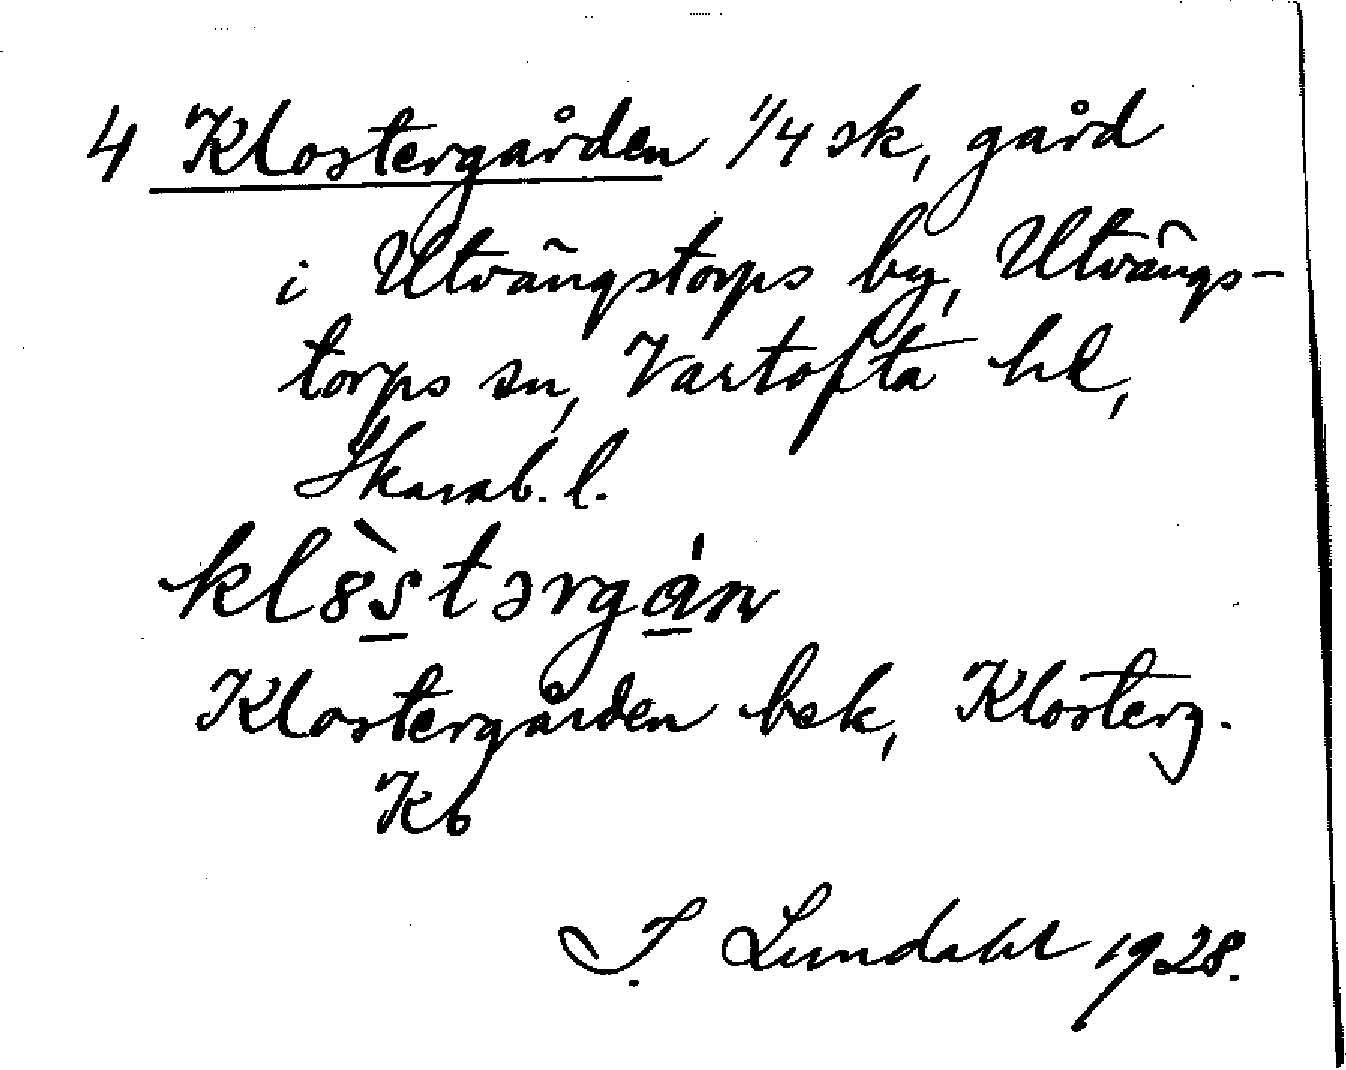 4 Klostergården 1/4 sk, gård
i Utvängstorps by, Utvängs-
torps sn, Vartofta hd,
Skarab. l.
kl8̀s̲tərga̲̍n
Klostergården bek, Klosterg.
Kb
I. Lundahl 1928.